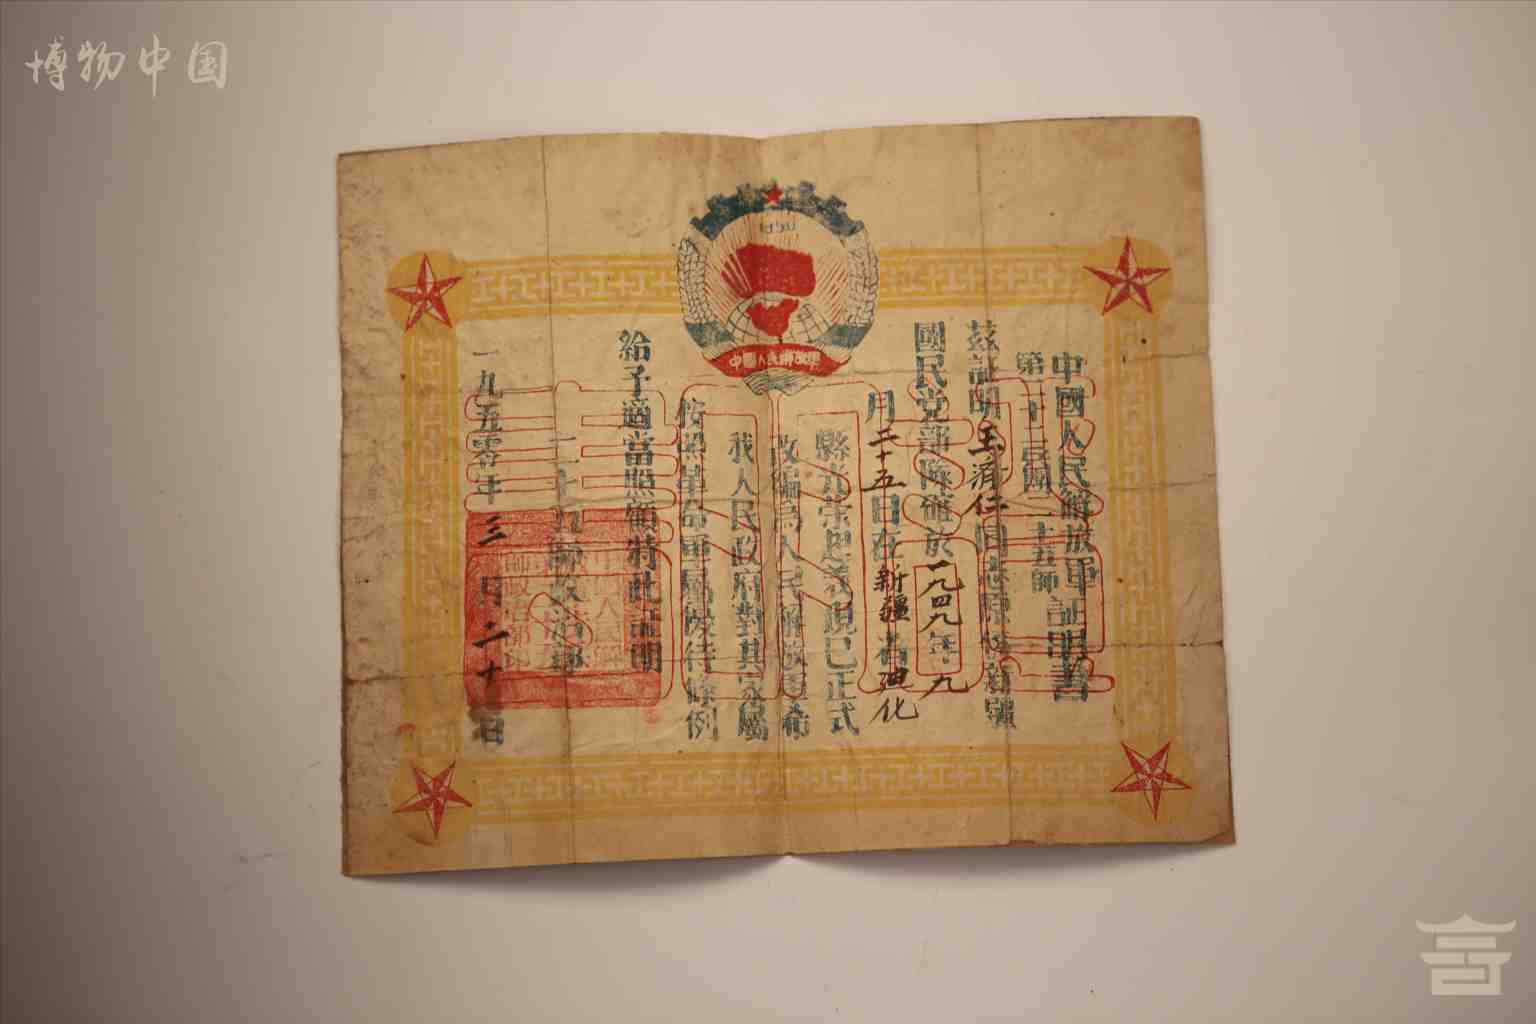 博物中国
1950
中國人民解放軍
中國人民解放軍証明書
第二十二兵團二十五師
茲証明王済仁同志原係新疆
國民党部隊確於一九四九年九
月二十五日在新疆省迪化
縣光荣起義現已正式
改編為人民解放軍希
我人民政府對其家屬
按照革命軍屬優待條例
給予適當照顧特此証明
二十五師政治部
一九五零年三月二十日